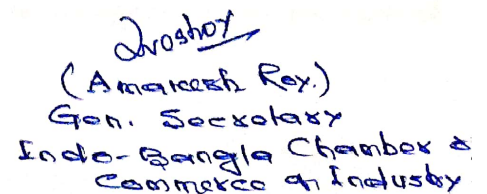 (Amaresh Roy.)
Gen. Secretary
Indo-Bangla Chamber &
Commerce & Industry